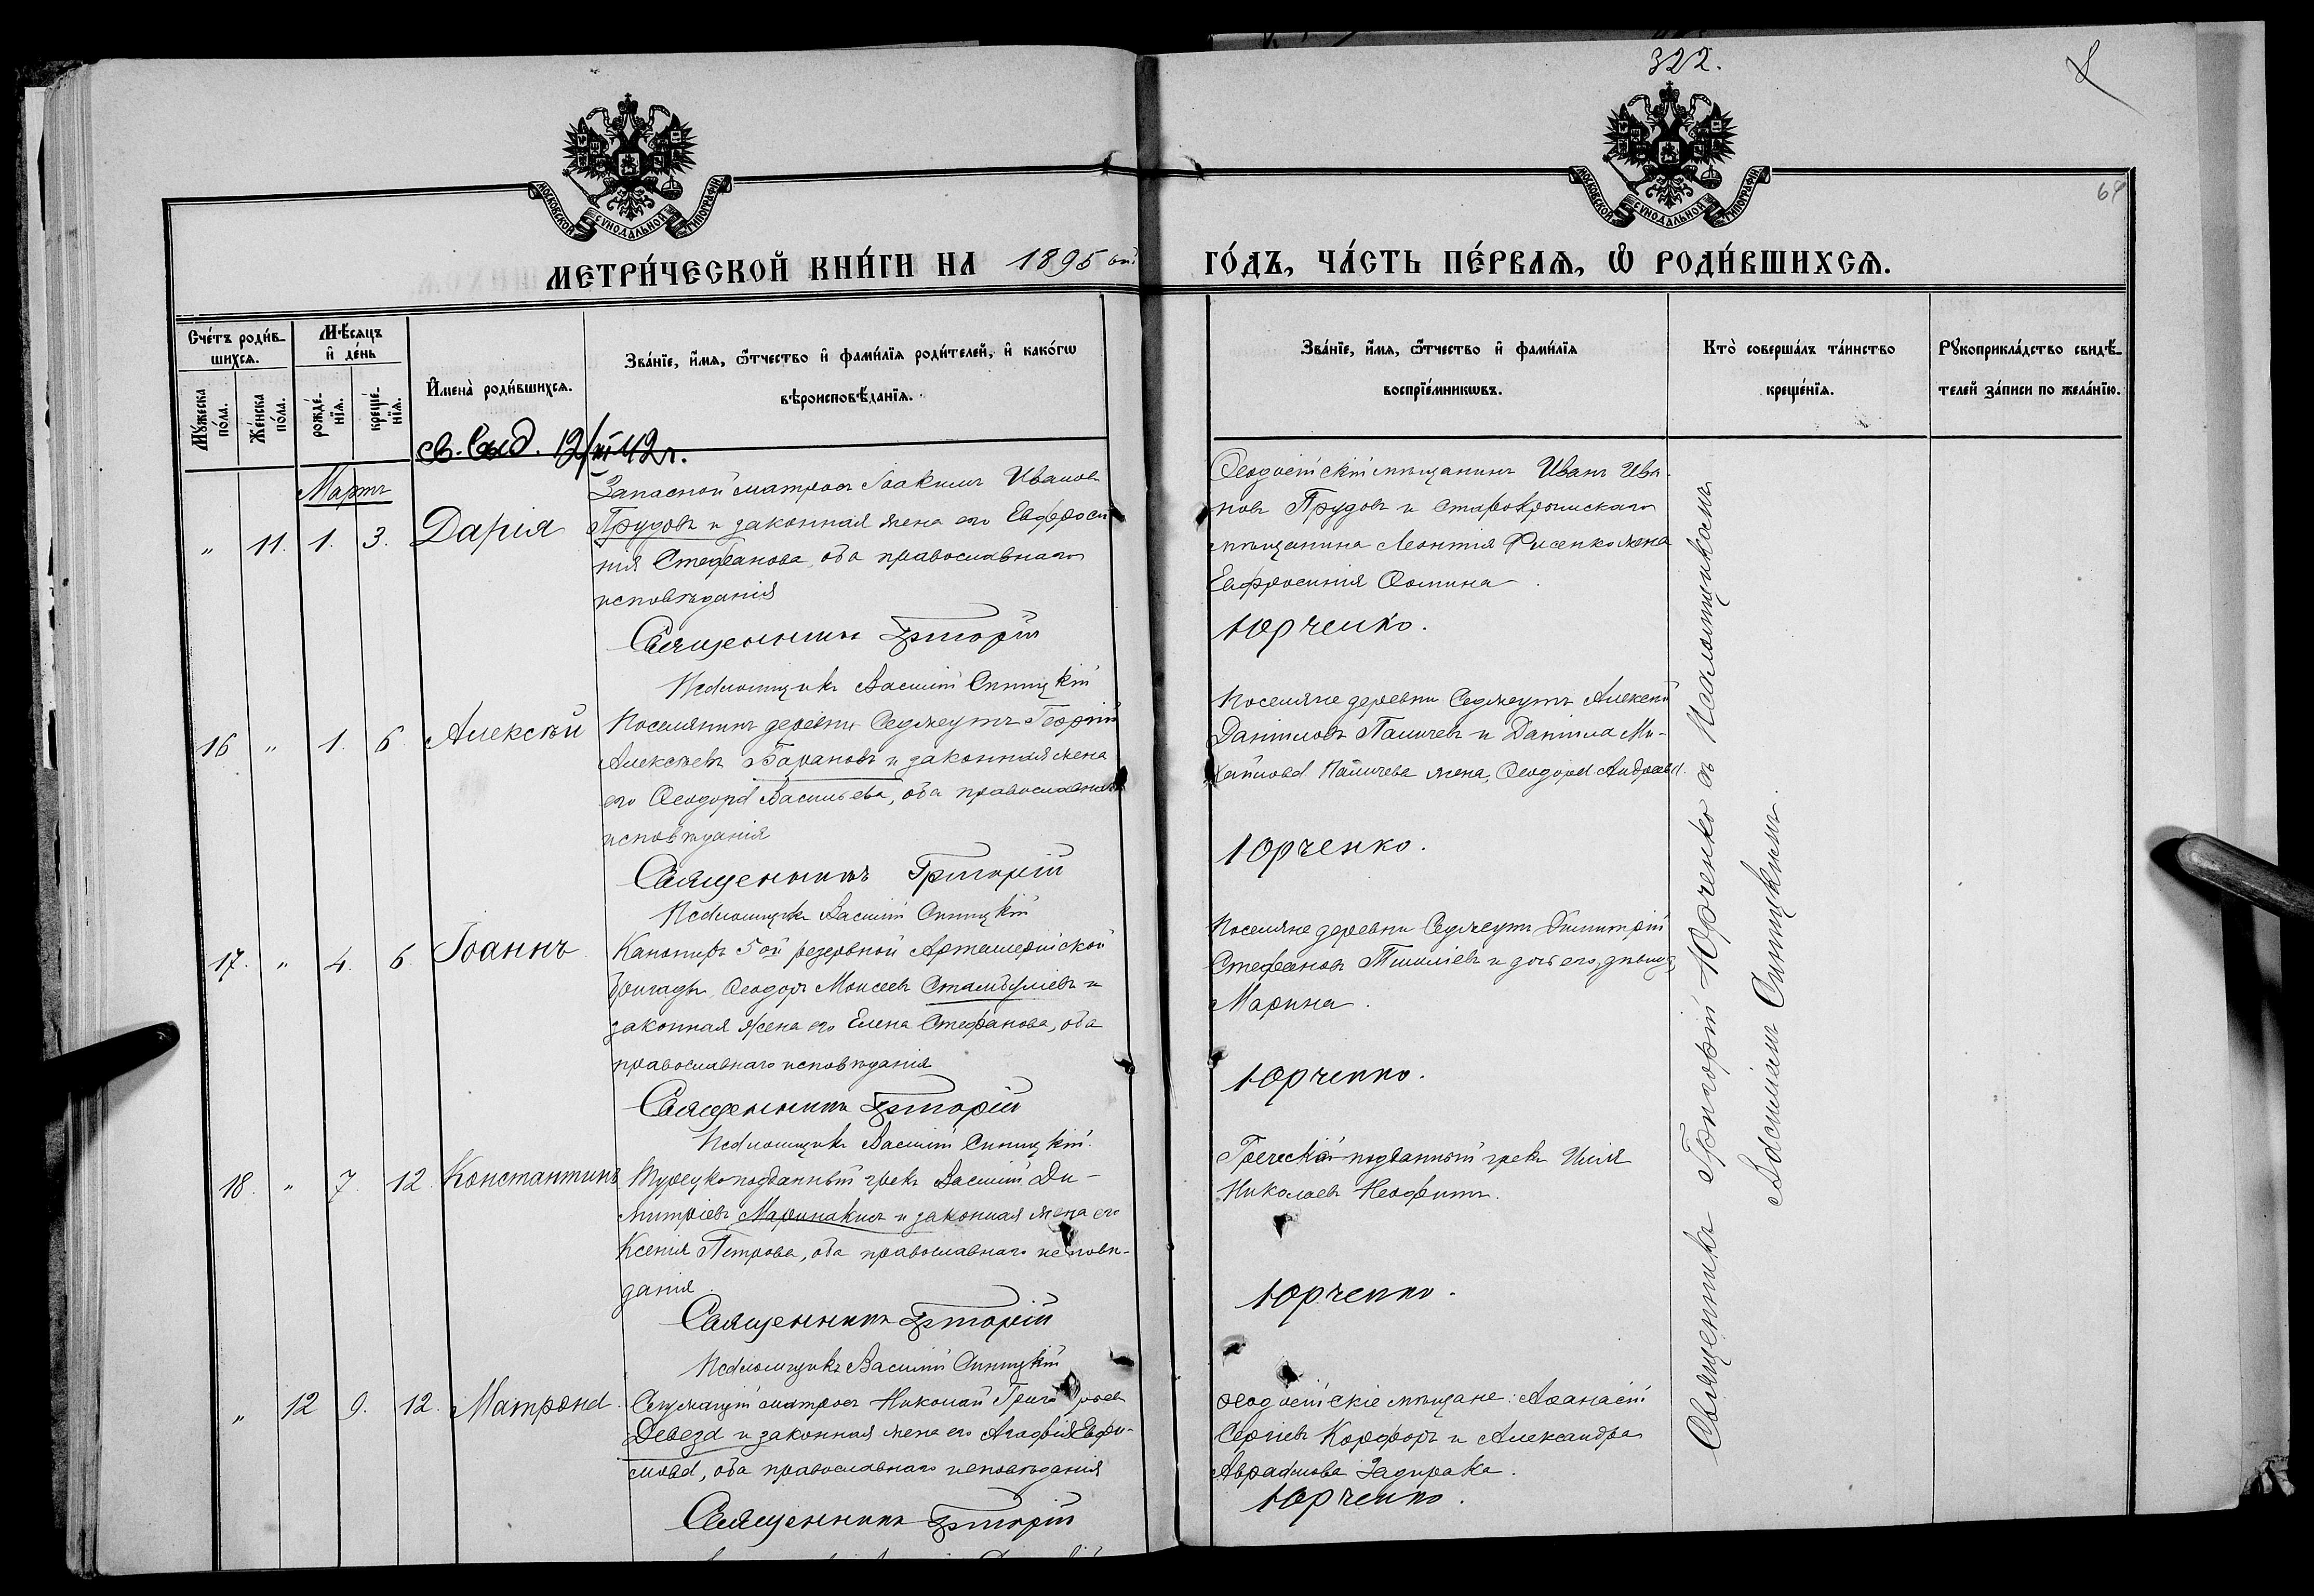 322.
8
64
МОСКОВСКОЙ СѴНОДАЛЬНОЙ ТИПОГРАФІИ
МОСКОВСКОЙ СѴНОДАЛЬНОЙ ТИПОГРАФІИ
МЕТРИ́ЧЕСКОЙ КНИ́ГИ НА 1895 ый ГО́ДЪ, ЧА́СТЬ ПЕ́РВАѦ, Ѡ РОДИ́ВШИХСѦ.
Сче́тъ роди́в-
шихсѧ.
Мꙋ́жеска
по́ла.
Же́нска
по́ла.
Мѣ́сѧцъ
и де́нь
рожде́-
нїѧ.
креще́-
нїѧ.
Имена̀ роди́вшихсѧ.
Зва́нїе, и́мѧ, ѻ́тчество и фами́лїѧ роди́телей, и како́гѡ
вѣроисповѣ́данїѧ.
Зва́нїе, и́мѧ, ѻ́тчество и фами́лїѧ
воспрїе́мникѡвъ.
Кто̀ соверша́лъ та́инство
креще́нїѧ.
Рꙋкоприкла́дство свидѣ́-
телей за́писи по жела́нїю.
12/III 42 г.
Мартъ
" 11. 1. 3. Дарія
Запасной матросъ Іоакимъ Иванов
Прудовъ и законная жена его Евфроси
нія Стефанова, оба православнаго
исповѣданія
Священникъ Григорій
Псаломщикъ Василій Синицкій
Ѳеодосійскій мѣщанинъ Иванъ Ива-
новъ Прудовъ и Старокрымскаго
мѣщанина Леонтія Фисенко жена
Евфросинія Ѳомина.
Юрченко.
16 " 1. 6. Алексѣй
Поселянинъ деревни Седжеутъ Георгій
Алексѣевъ Барановъ и законная жена
его Ѳеодора Васильева, оба православнаго
исповѣданія
Священникъ Григорій
Псаломщикъ Василій Синицкій
Поселяне деревни Седжеутъ Алексѣй
Даніиловъ Паличевъ и Даніила Ми-
хайлова Паличева жена, Ѳеодора Андреева.
Юрченко.
17. " 4. 6. Іоаннъ
Канониръ 5ой резервной Артиллерійской
бригады, Ѳеодоръ Моисеевъ Стамбуліевъ и
законная жена его Елена Стефанова, оба
православнаго исповѣданія
Священникъ Григорій
Псаломщикъ Василій Синицкій.
Поселяне деревни Седжеутъ Димитрій
Стефановъ и дочь его, дѣвица
Марина.
Юрченко.
18. " 7. 12. Константинъ
Турецкоподданный грекъ Василій Ди-
митріевъ Маринакисъ и законная жена его
Ксенія Петрова, оба православнаго исповѣ-
данія.
Священникъ Григорій
Псаломщикъ Василій Синицкій
Греческій подданный грекъ Илія
Николаевъ Неофитъ.
Юрченко.
" 12 9. 12. Матрона.
Служащій матросъ Николай Григорьев
Девеза и законная жена его Агафія Евфи-
мова, оба православнаго исповѣданія
Священникъ Григорій
Ѳеодосійскіе мѣщане: Аѳанасій
Сергіевъ Корфоръ и Александра
Авраамова Задирака.
Юрченко.
Священникъ Григорій Юрченко съ Псаломщикомъ
Василіемъ Синицкимъ.